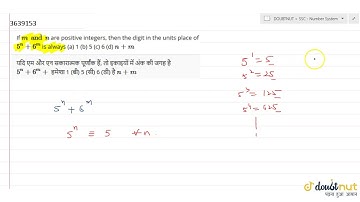 3639153
DOUBTNUT > SSC : Number System
If m and n are positive integers, then the digit in the units place of
5ⁿ + 6ᵐ is always (a) 1 (b) 5 (c) 6 (d) n + m
यदि एम और एन सकारात्मक पूर्णांक हैं, तो इकाइयों में अंक की जगह है
5ⁿ + 6ᵐ हमेशा 1 (बी) 5 (सी) 6 (डी) है n + m
5¹ = 5
5² = 25
5³ = 125
5⁴ = 625
5ⁿ + 6ᵐ
5ⁿ ≡ 5 ∀ n
doubtnut